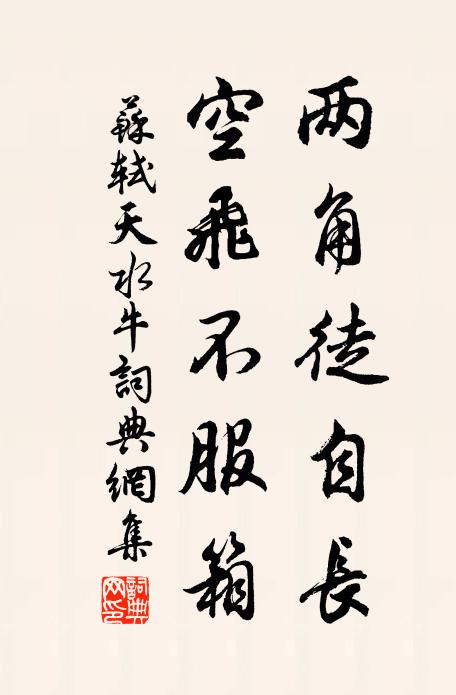 两角徒自長
空飛不服箱
蘇軾天水牛詞典網集
詞典网印